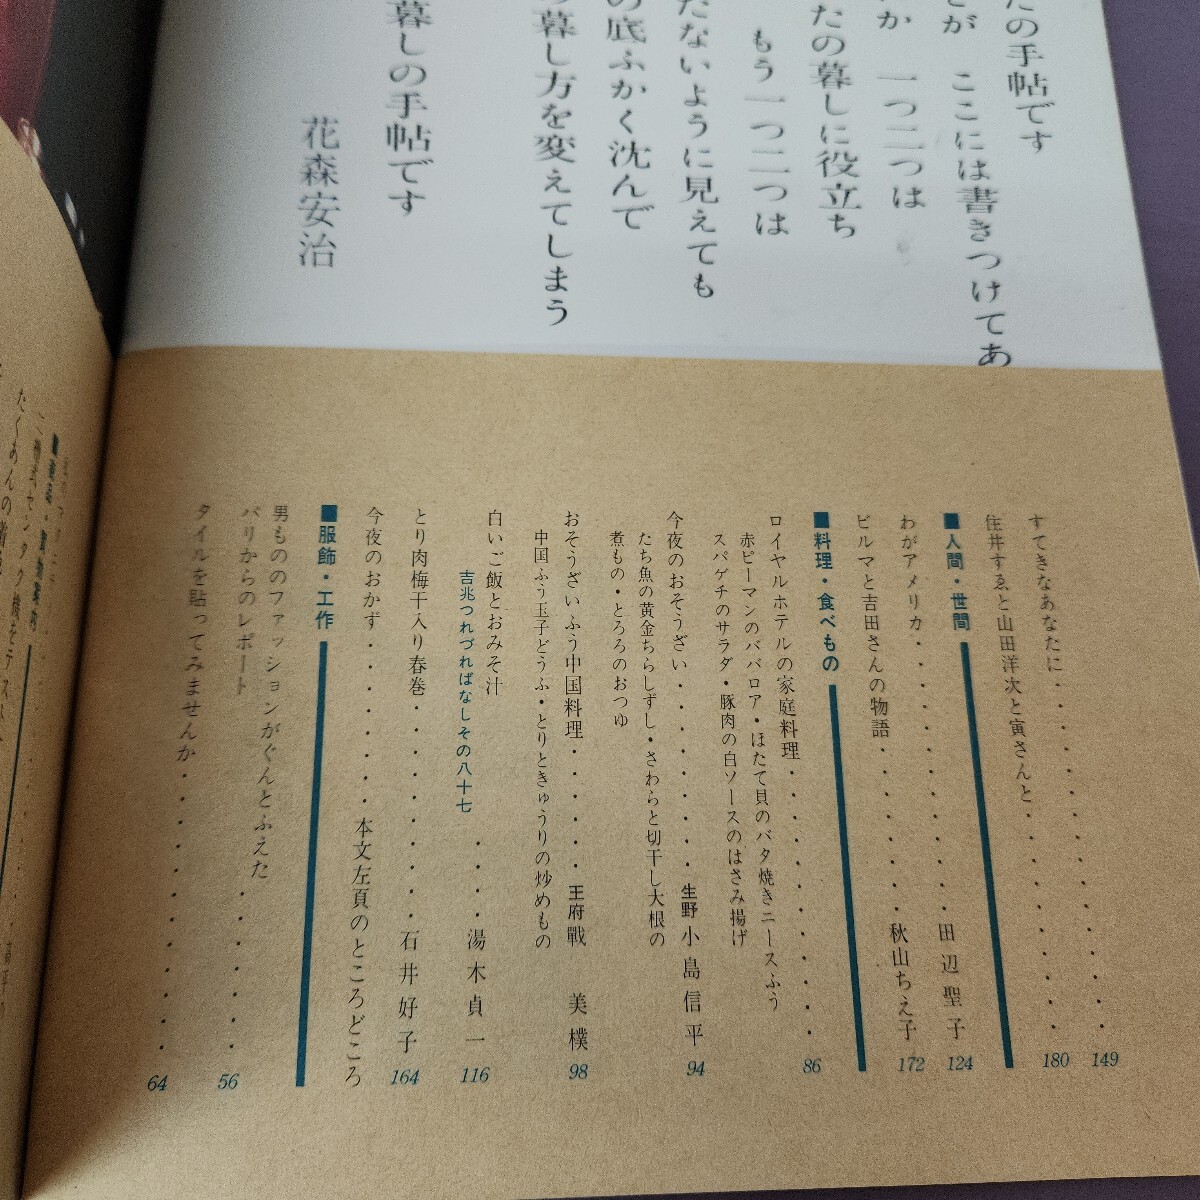 たの手帖です
とが ここには書きつけてあ
か 一つ二つは
たの暮しに役立ち
もう一つ二つは
たないように見えても
の底ふかく沈んで
暮し方を変えてしまう
暮しの手帖です
花森安治
すてきなあなたに 149
住井すゑと山田洋次と寅さんと 180
■人間・世間
わがアメリカ 田辺聖子 124
ビルマと吉田さんの物語 秋山ちえ子 172
■料理・食べもの
ロイヤルホテルの家庭料理 86
赤ピーマンのババロア・ほたて貝のバタ焼きニースふう
スパゲチのサラダ・豚肉の白ソースのはさみ揚げ
今夜のおそうざい 生野 小島信平 94
たち魚の黄金ちらしずし・さわらと切干し大根の
煮もの・とろろのおつゆ
おそうざいふう中国料理 王府 戰美樸 98
中国ふう玉子どうふ・とりときゅうりの炒めもの
白いご飯とおみそ汁
吉兆つれづればなしその八十七 湯木貞一 116
とり肉梅干入り春巻 石井好子 164
今夜のおかず 本文左頁のところどころ
■服飾・工作
男もののファッションがぐんとふえた
パリからのレポート 56
タイルを貼ってみませんか 64